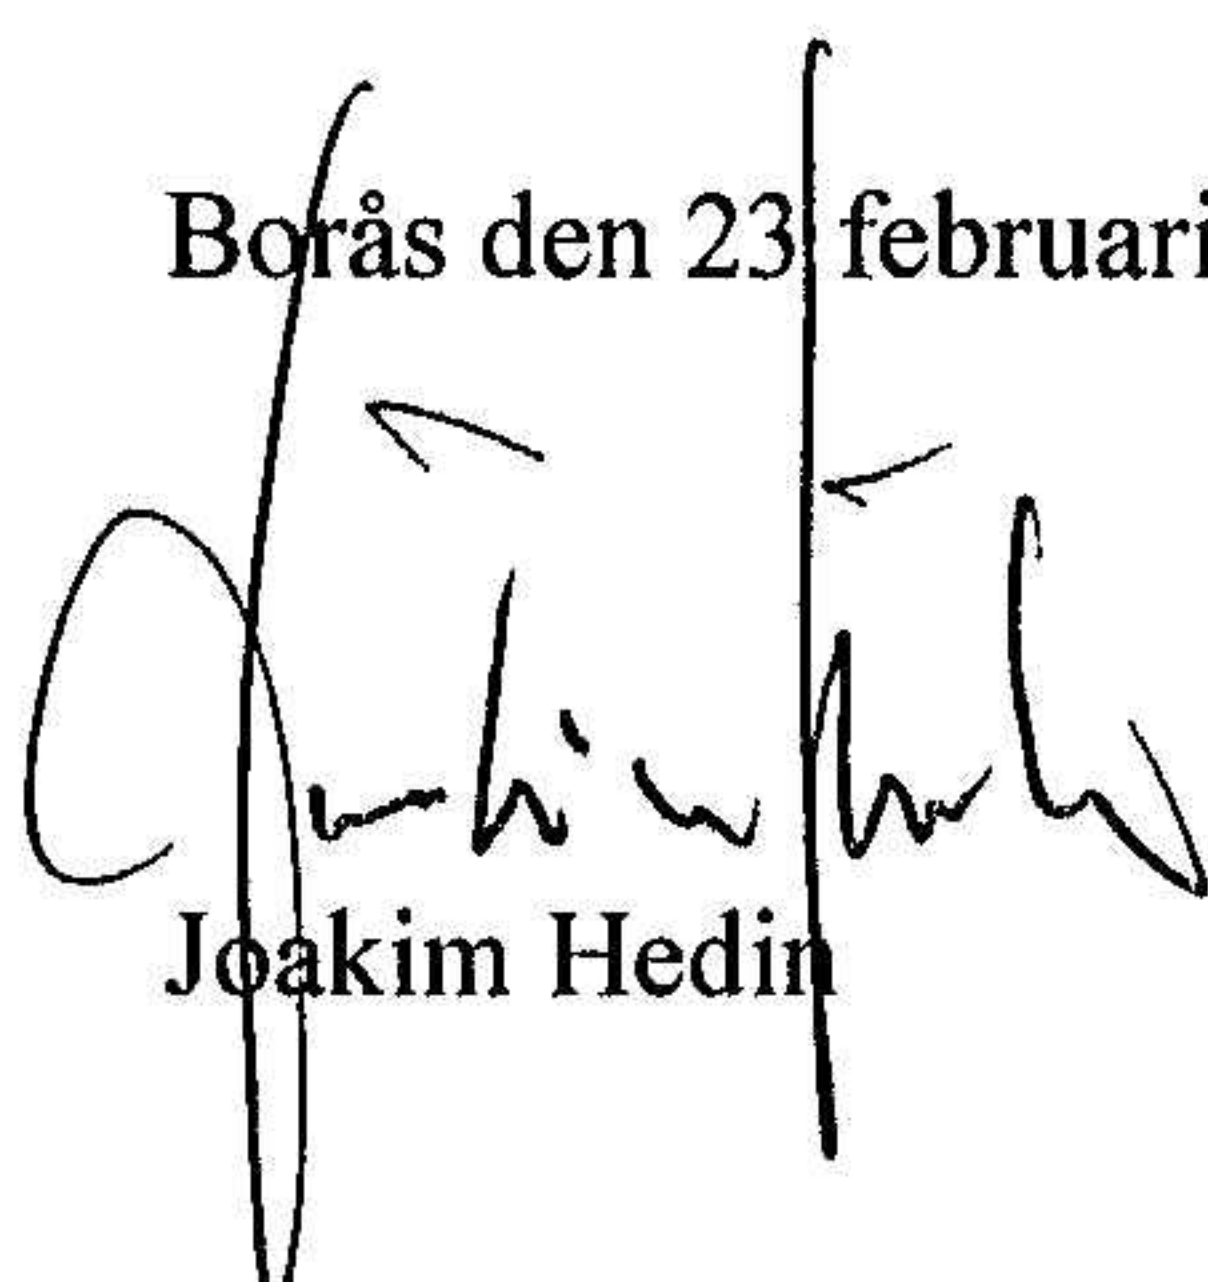 Borås den 23 februari
Joakim Hedin